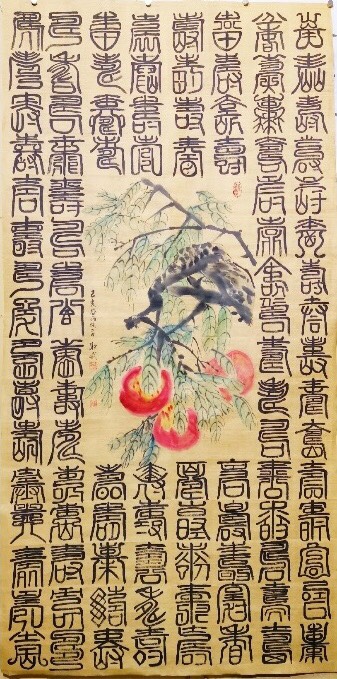 壽壽壽壽壽壽壽壽壽壽壽壽壽壽壽壽
壽壽壽壽壽壽壽壽壽壽壽壽壽壽壽壽
壽壽壽壽
壽壽壽壽
壽壽壽壽
壽壽壽壽
己亥
壽壽壽壽壽
壽壽壽壽壽
壽壽壽壽壽
壽壽壽壽壽
壽壽壽壽壽壽壽壽壽壽壽壽壽壽壽壽
壽壽壽壽壽壽壽壽壽壽壽壽壽壽壽壽